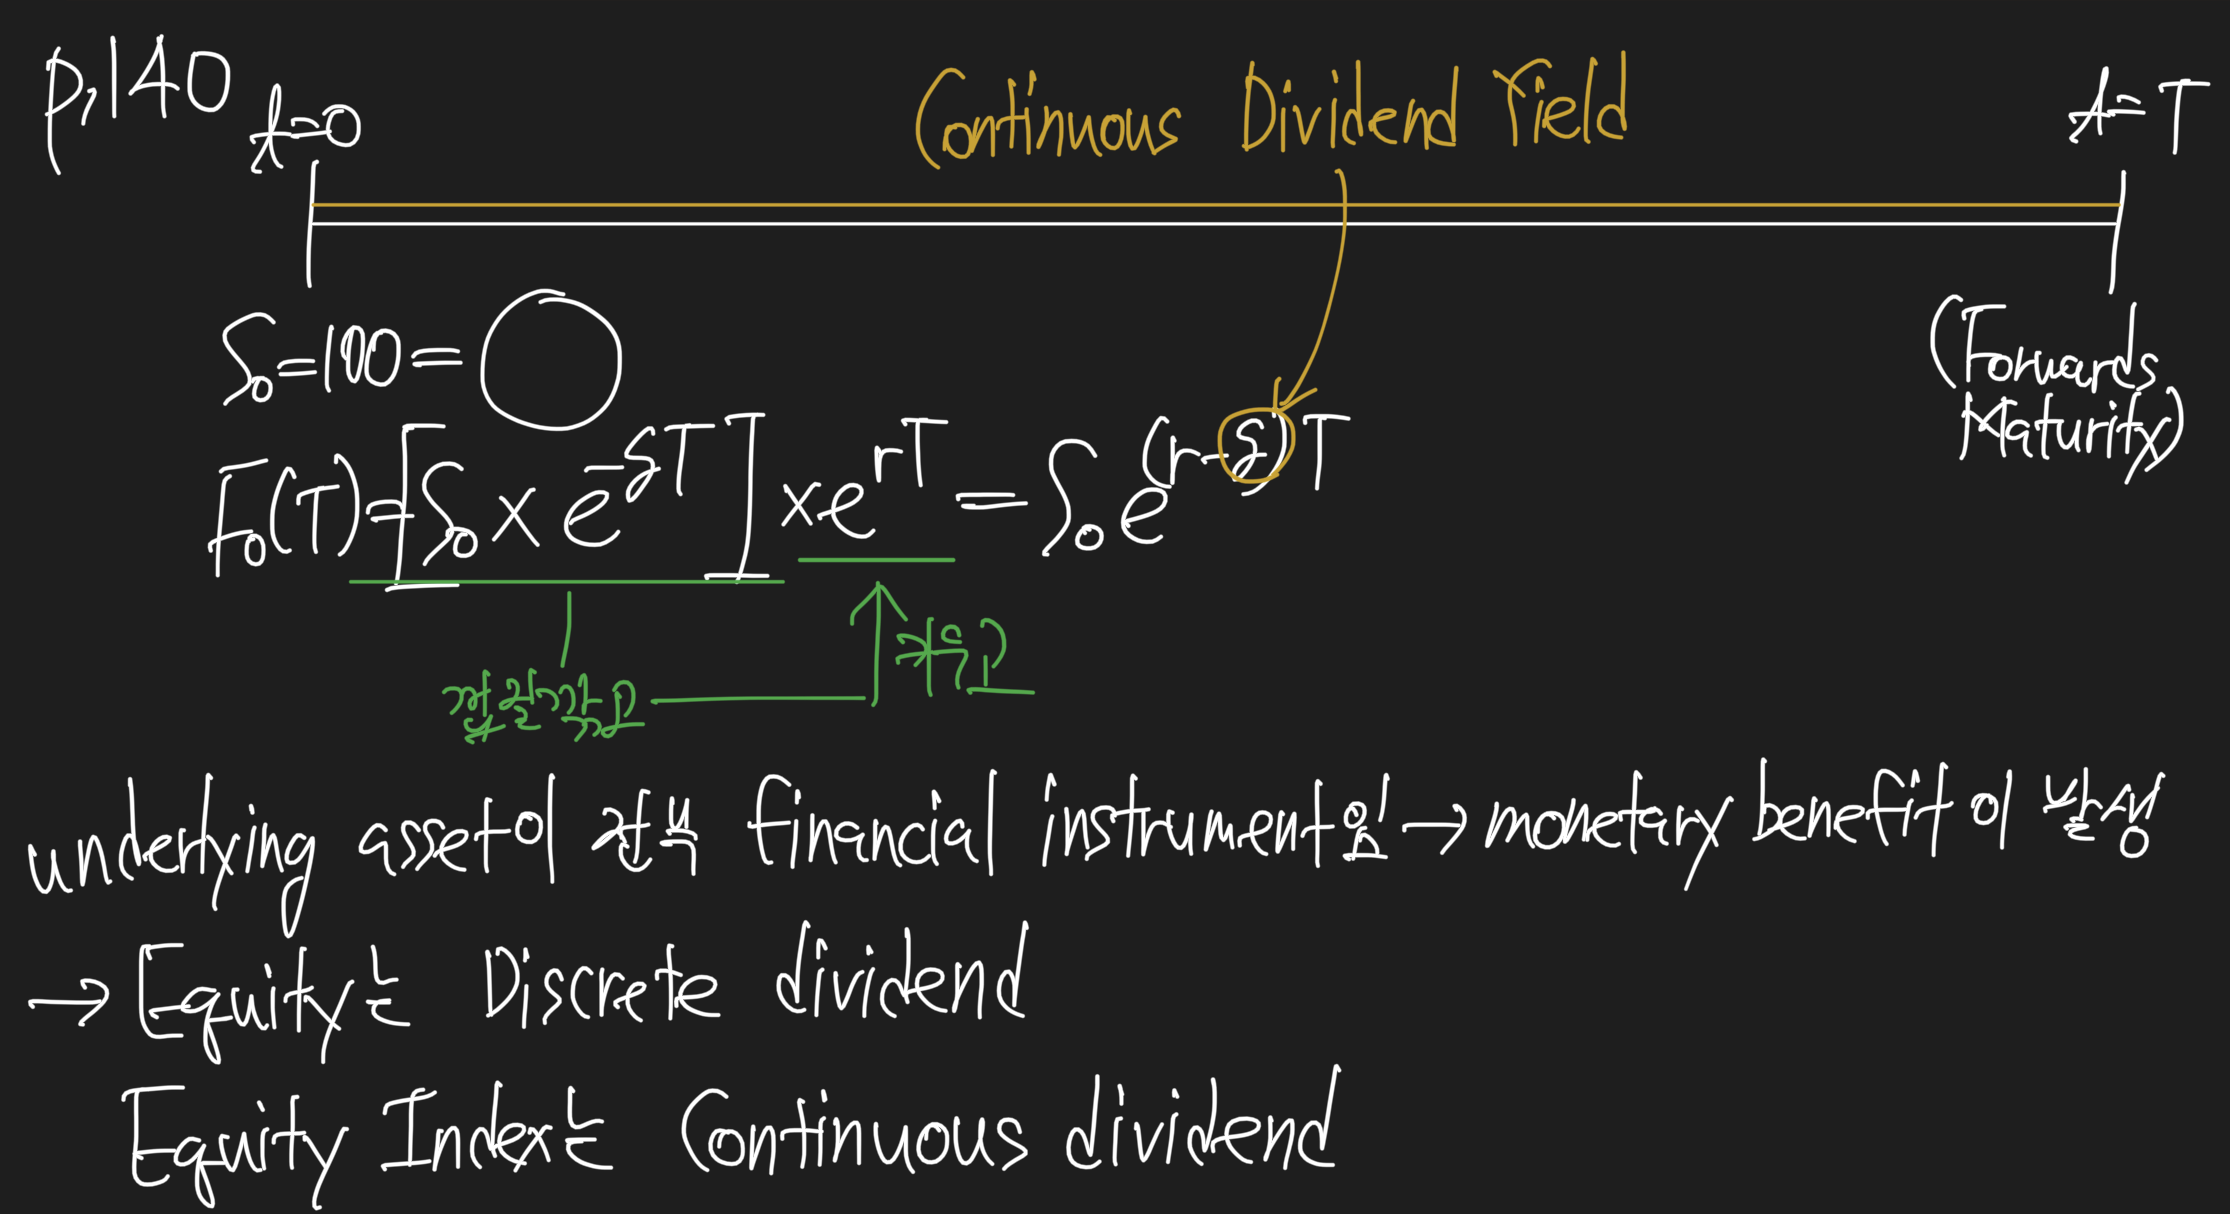 p.140
t=0
Continuous Dividend Yield
t=T
S₀=100=
(Forwards Maturity)
F₀(T)=[S₀×e^-δT]×e^rT=S₀e^(r-δ)T
underlying asset이 financial instrument일 → monetary benefit이 발생
→ Equity는 Discrete dividend
Equity Index는 Continuous dividend